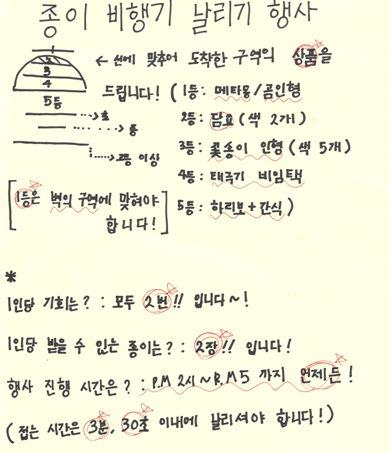 종이 비행기 날리기 행사
← 선에 맞추어 도착한 구역의 상품을
드립니다! (1등: 메타몽/곰인형
2등: 담요 (색 2개)
3등: 꽃송이 인형 (색 5개)
4등: 태극기 비임택
5등: 하리보+간식)
2
3
4
5등
→ 초
→ 중
→ 2등 이상
[1등은 벽의 구역에 맞혀야
합니다!]
*
1인당 기회는? : 모두 2번!! 입니다~!
1인당 받을 수 있는 종이는? : 2장!! 입니다!
행사 진행 시간은? : P.M 2시~P.M 5 까지 언제든!
(접는 시간은 3분, 30초 이내에 날리셔야 합니다!)